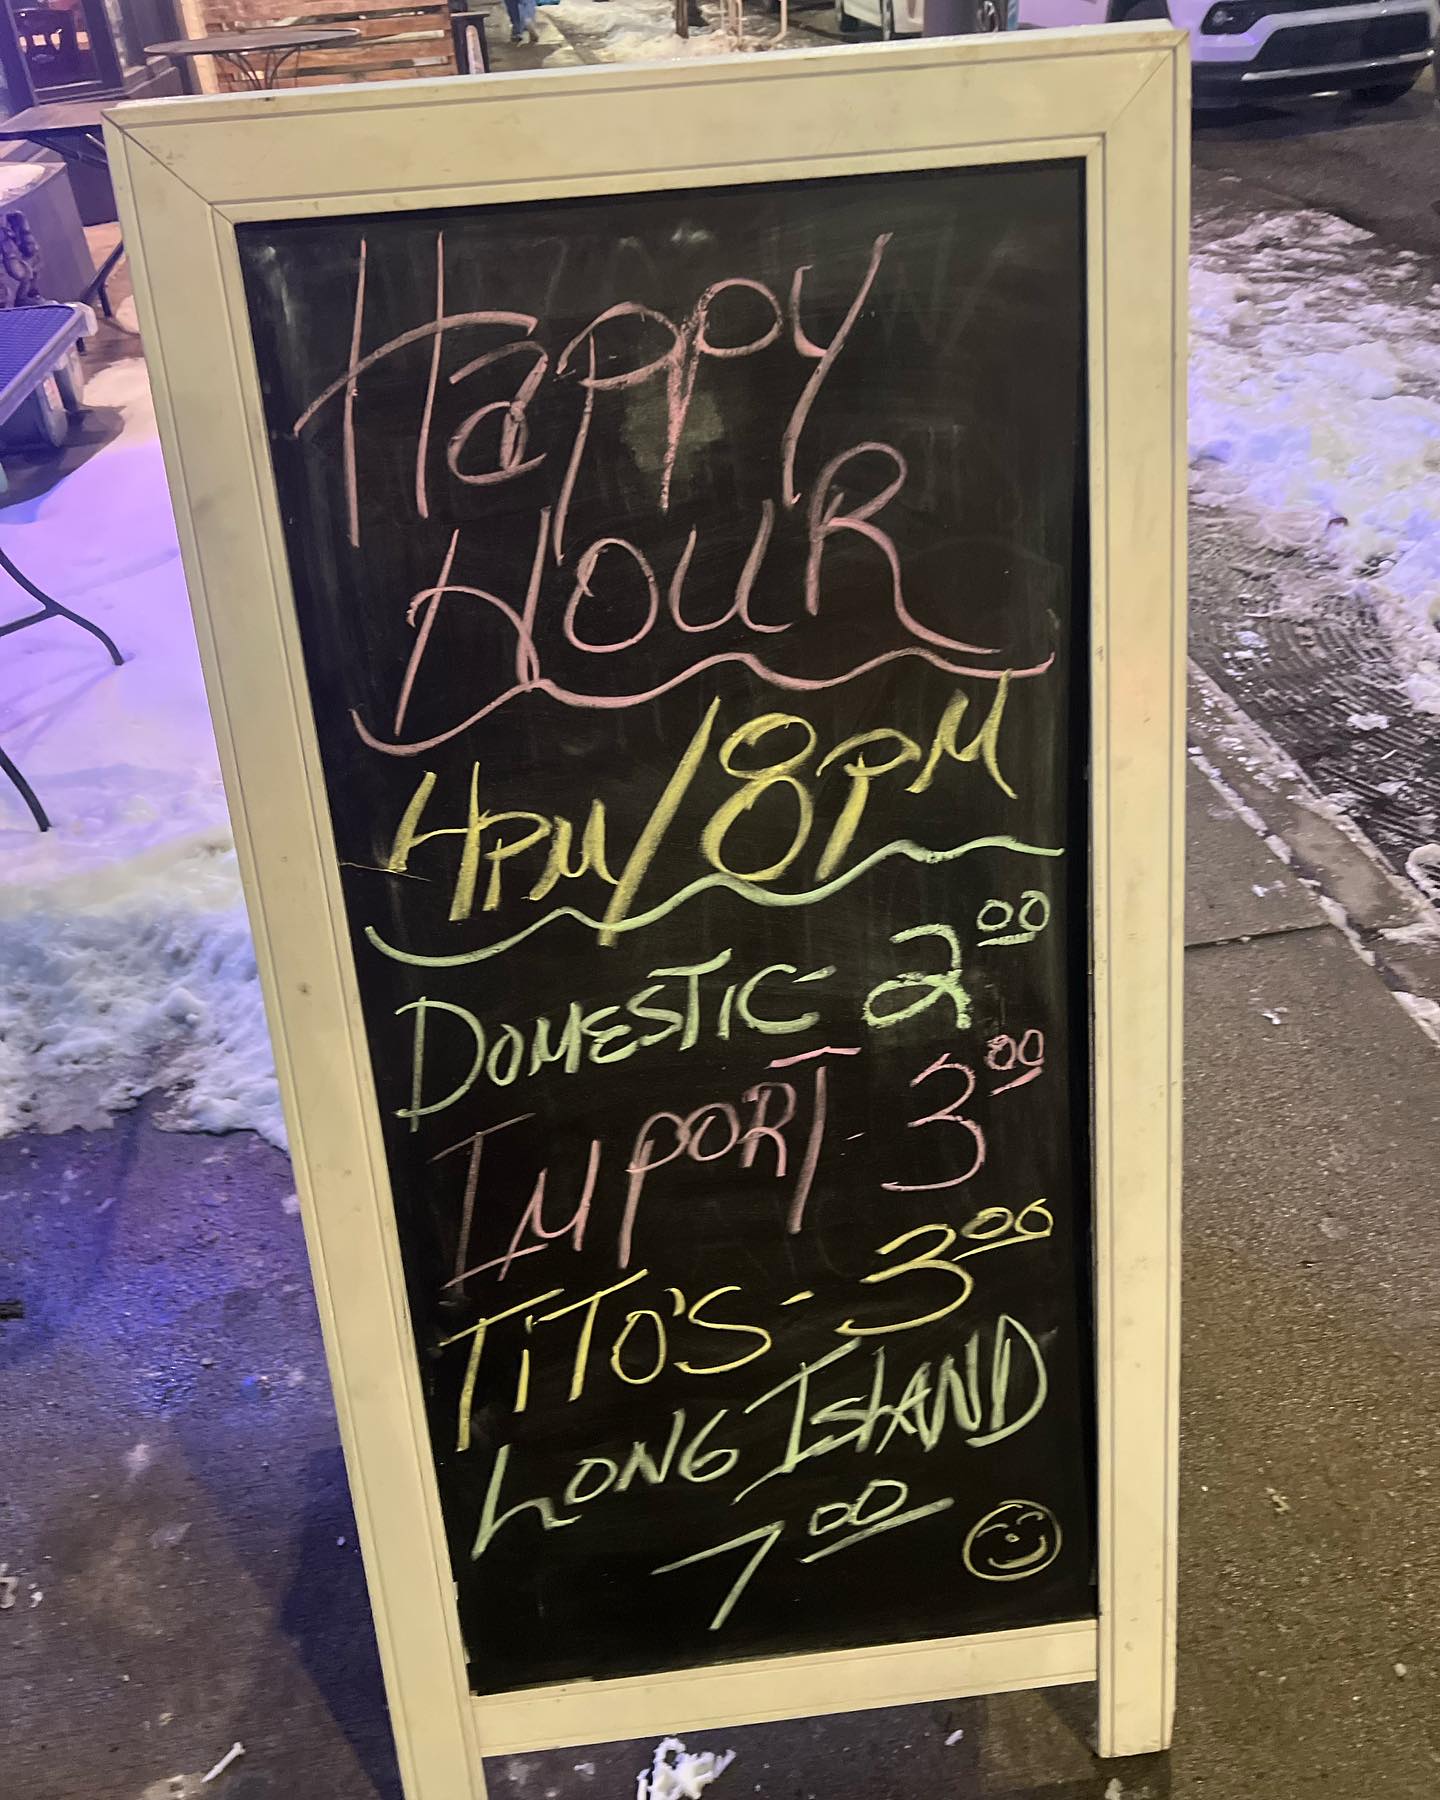 Happy
Hour
4pm/8pm
Domestic - 2.00
Import - 3.00
Tito's - 3.00
Long Island
7.00